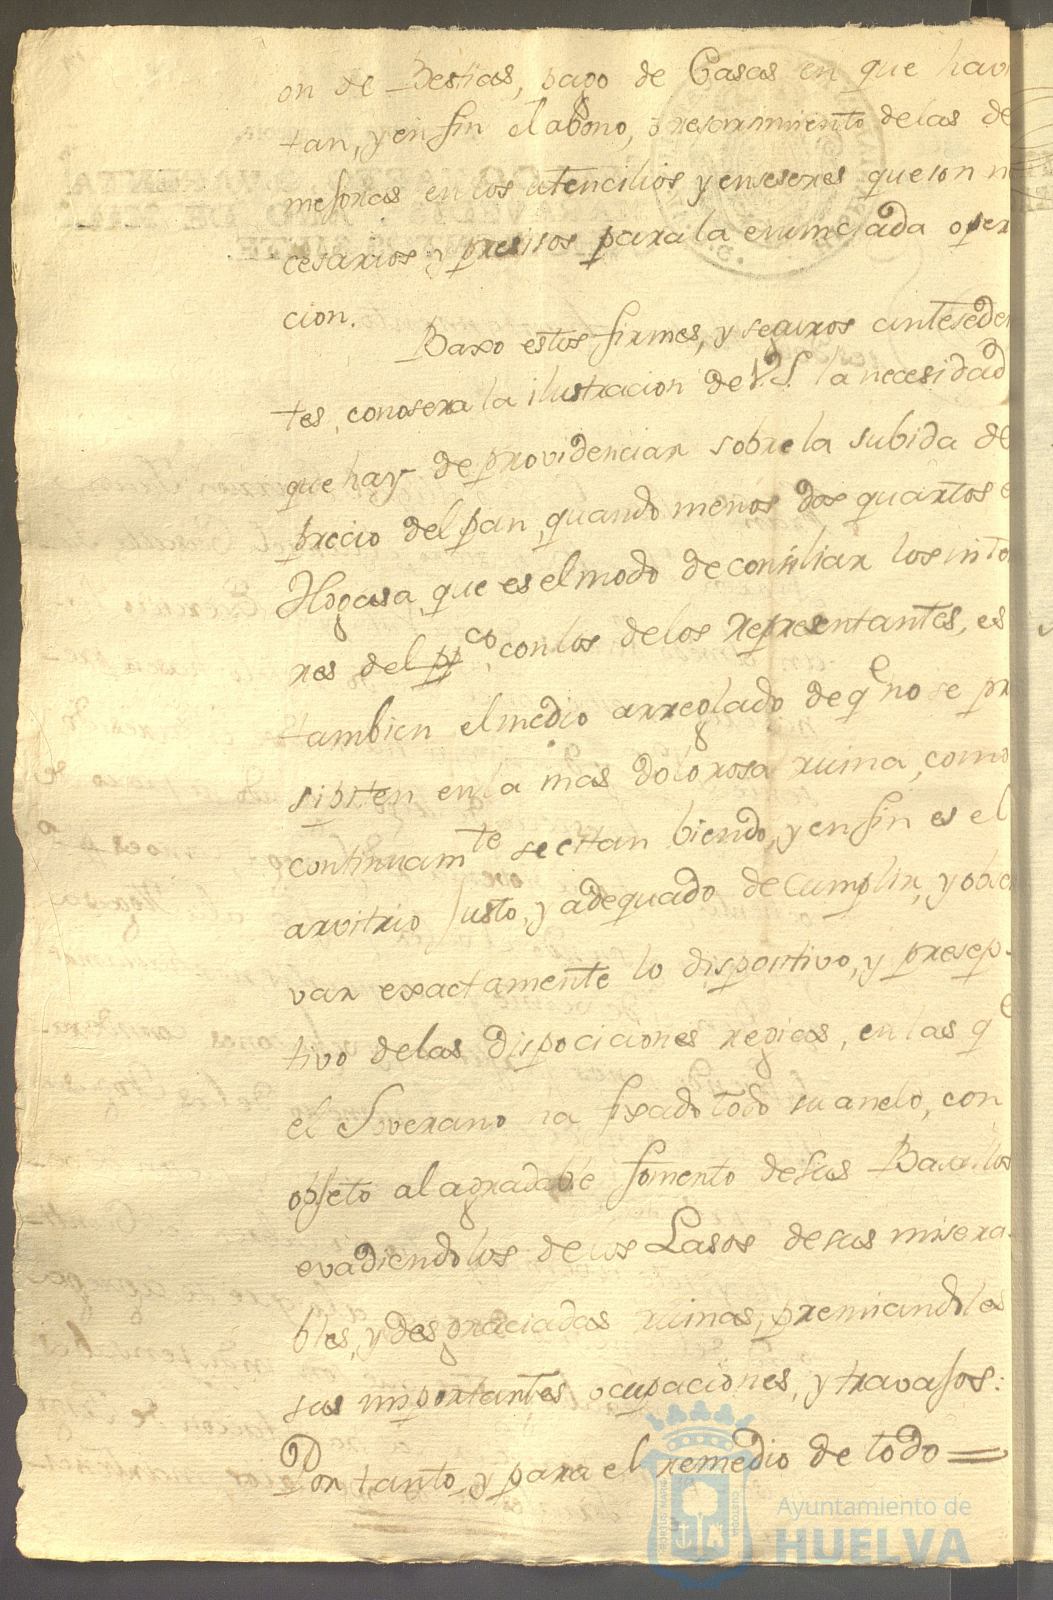 on de Bestias, pago de Casas en que havi
tan, y en fin el abono, o resarcimiento de las de
mesorias en los utencilios y enseseres que son n
cesarios y presisos para la enunciada oper
cion.
Baxo estos firmes, y seguros antesede
tes, conosera la ilustracion de V.S. la necesidad
que hay de providenciar sobre la subida de
precio del pan, quando menos dos quartos e
Hogasa, que es el modo de consiliar los inte
res del pp.co, con los de los representantes, es
tambien el medio arreglado de qe no se pr
sipiten en la mas dolorosa ruina, como
continuamte se estan biendo, y en fin es el
arvitrio justo, y adequado de cumplir, y obser
var exactamente lo dispositivo, y presep-
tivo de las dispociciones regias, en las qe
el Soverano ha fixado todo su anelo, con
objeto al agradable fomento de sus Basallos
evadiendolos de los Lasos de sus misera-
bles, y desgraciadas ruinas, premiandoles
sus importantes ocupaciones, y travajos:
Por tanto, y para el remedio de todo =
Ayuntamiento de
HUELVA